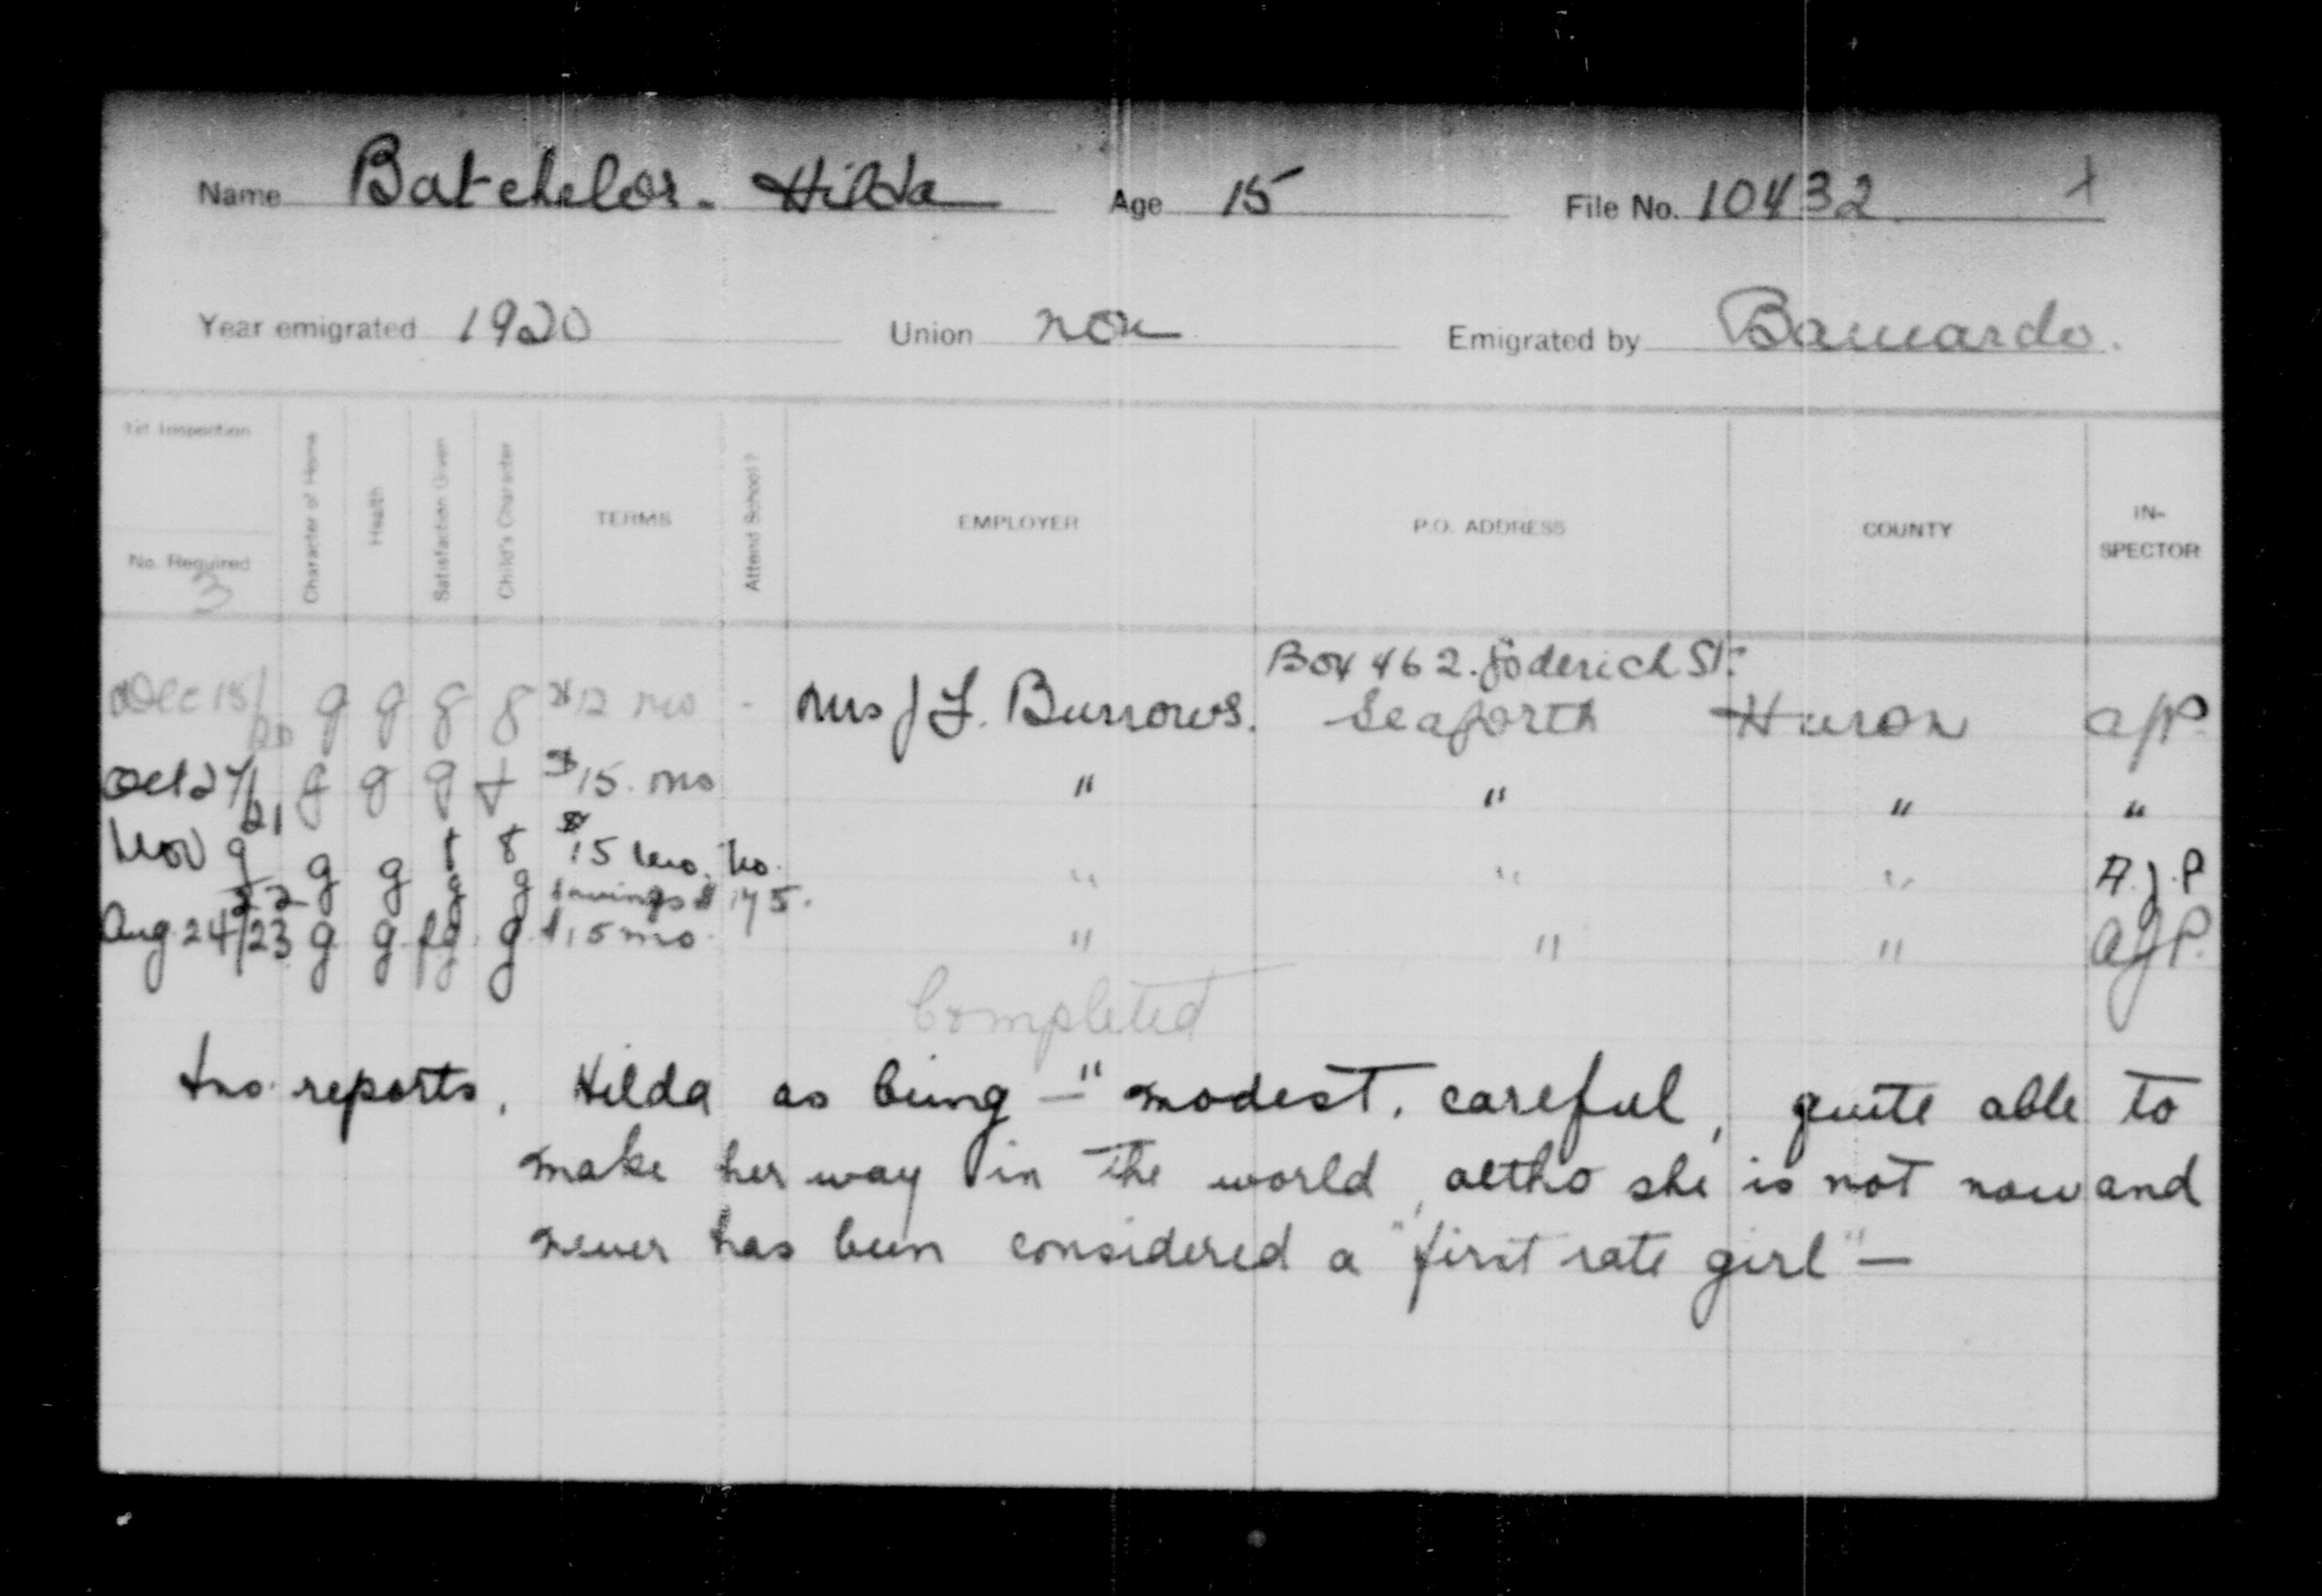 Name Batchelor - Hilda Age 15 File No. 10432 X
Year emigrated 1920 Union non Emigrated by Barnardo.
1st Inspection
No. Required
3
Character of Home
Health
Satisfaction Given
Child's Character
TERMS
Attend School?
EMPLOYER
P.O. ADDRESS
COUNTY
IN-
SPECTOR
Box 462. Goderich St.
Dec 15/20 g g g g $12 mo - Mrs J F. Burrows. Seaforth Huron AJP.
Oct 27/21 f g g f $15. mo " " " "
Nov 9/22 g g f g f g $15 mo. No. " " " A.J.P
savings $ 145.
Aug. 24/23 g g fg g $15 mo. " " " AJP.
Completed
reports, Hilda as being — " modest, careful, quite able to
make her way in the world, altho she is not now and
never has been considered a "first rate girl" —